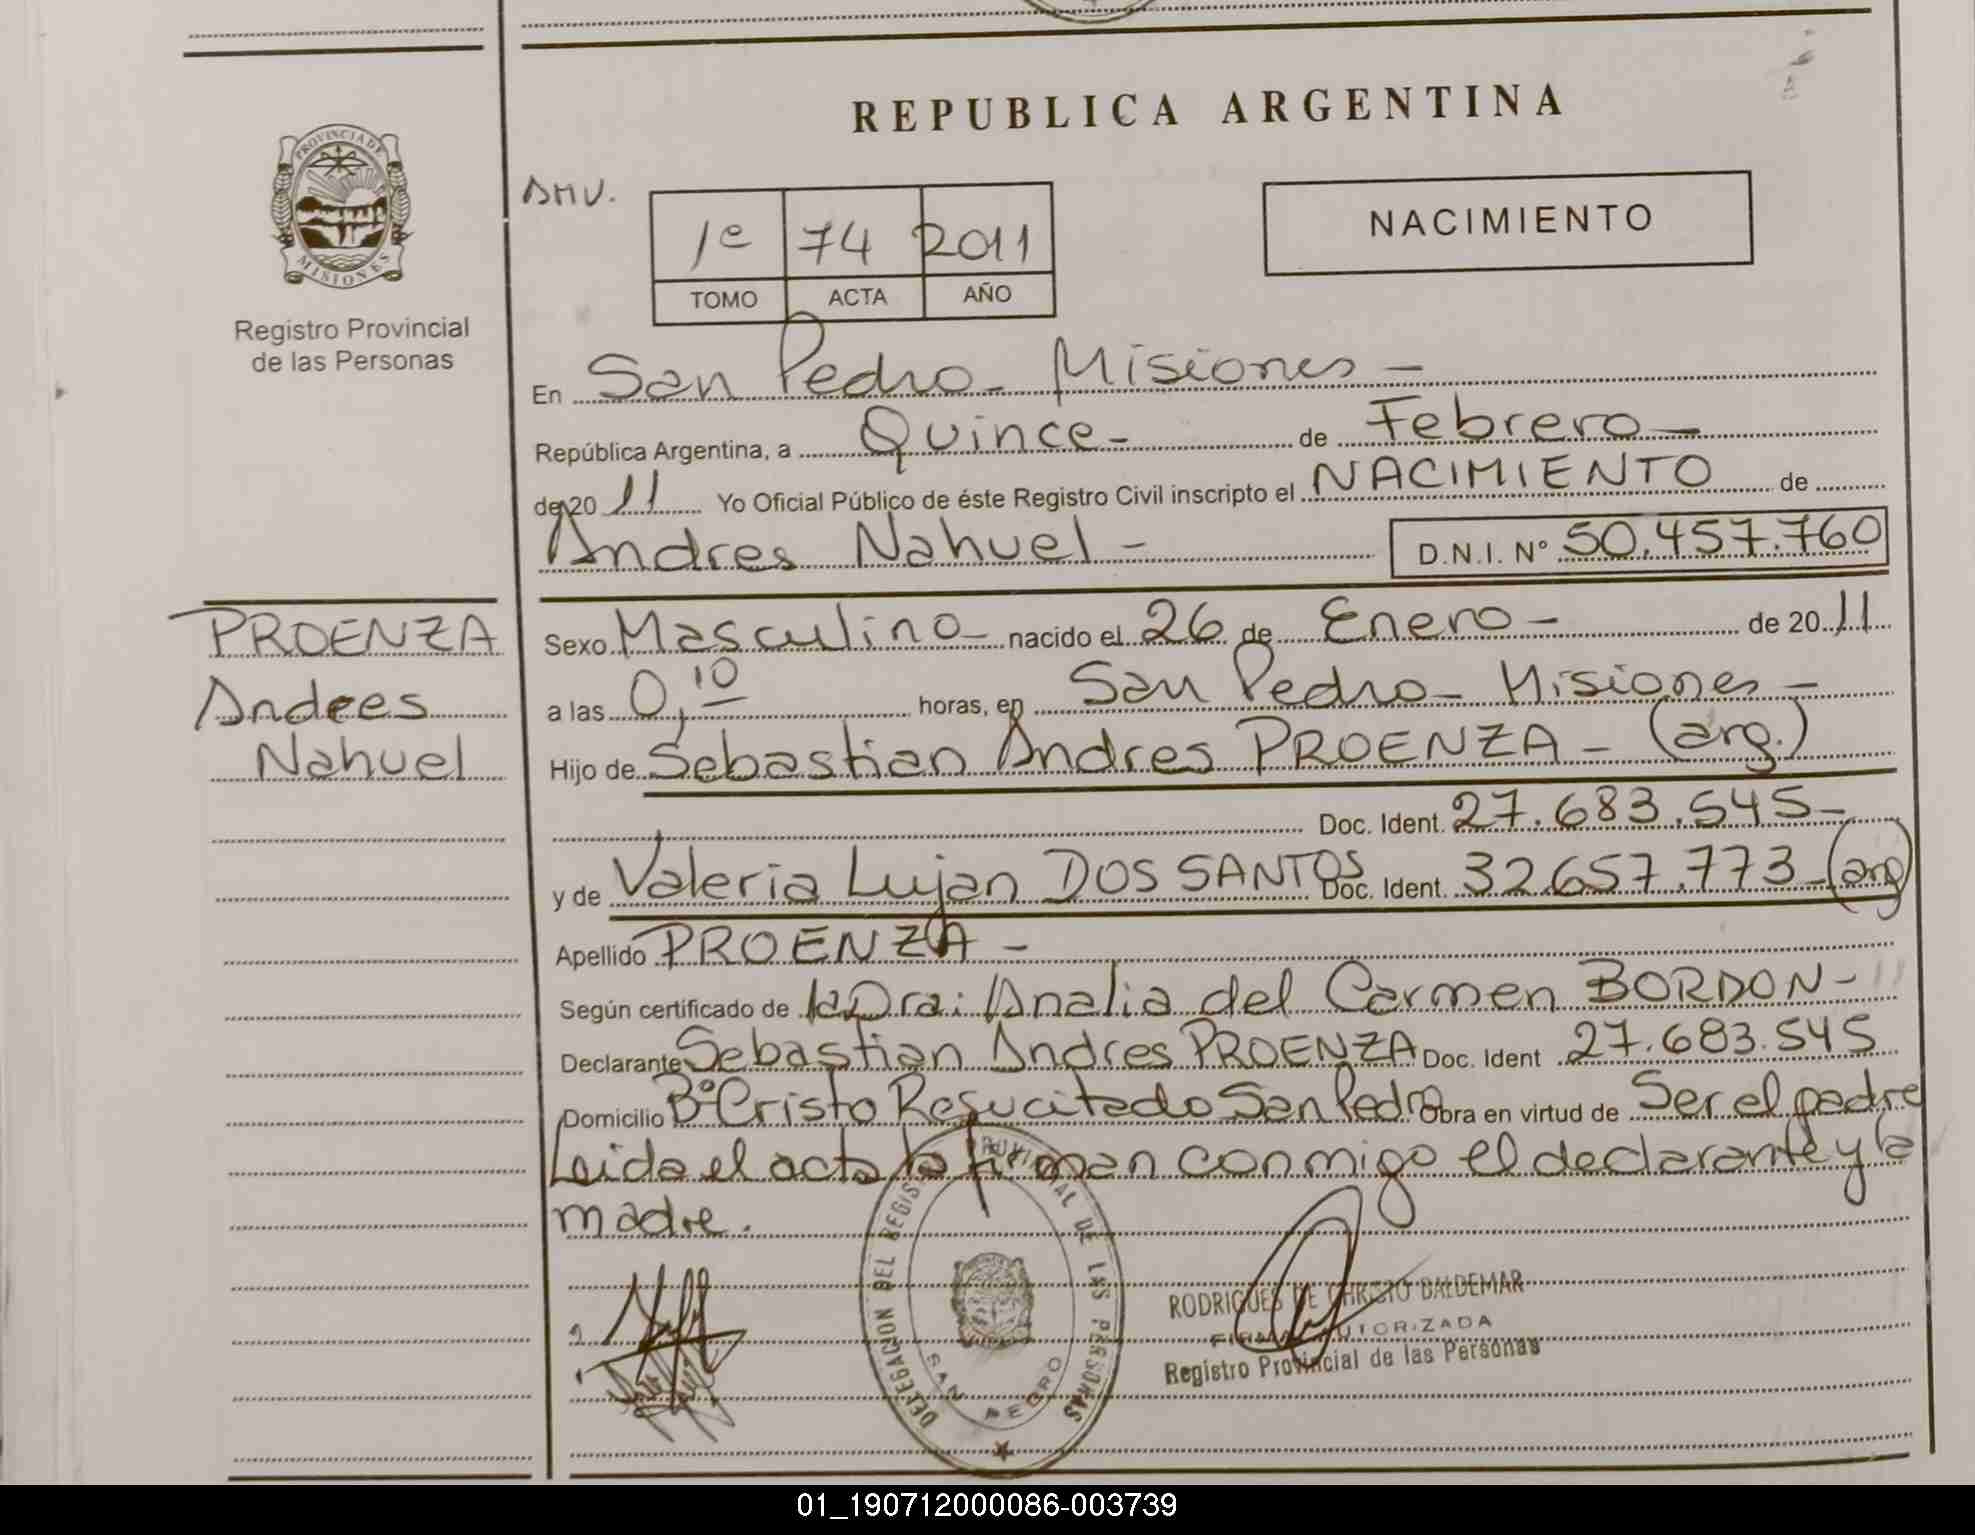 REPUBLICA ARGENTINA
PROVINCIA DE
MISIONES
Registro Provincial
de las Personas
DMV.
1º 74 2011
TOMO ACTA AÑO
NACIMIENTO
En San Pedro - Misiones -
República Argentina, a Quince - de Febrero -
de 20 11 Yo Oficial Público de éste Registro Civil inscripto el NACIMIENTO de
Andres Nahuel - D.N.I. Nº 50.457.760
PROENZA
Andres
Nahuel
Sexo Masculino - nacido el 26 de Enero - de 20 11
a las 0,10 horas, en San Pedro - Misiones -
Hijo de Sebastian Andres PROENZA - (arg.)
Doc. Ident. 27.683.545 -
y de Valeria Lujan DOS SANTOS Doc. Ident. 32.657.773 - (arg)
Apellido PROENZA -
Según certificado de la Dra: Analia del Carmen BORDON -
Declarante Sebastian Andres PROENZA Doc. Ident 27.683.545
Domicilio Bº Cristo Resucitado San Pedro Obra en virtud de Ser el padre
Leida el acta la firman conmigo el declarante y la
madre.
DELEGACION DEL REGISTRO PROVINCIAL DE LAS PERSONAS
SAN PEDRO
RODRIGUES DE CHRISTO BALDEMAR
FIRMA AUTORIZADA
Registro Provincial de las Personas
01_190712000086-003739